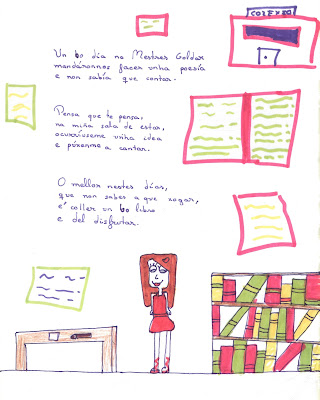 COLEXIO
Un bo día no Mestres Goldar
mandáronnos facer unha poesía
e non sabía que contar.
Pensa que te pensa,
na miña sala de estar,
ocurríuseme unha idea
e púxenme a cantar.
O mellor nestes días,
que non saber a que xogar,
é coller un bo libro
e del disfrutar.